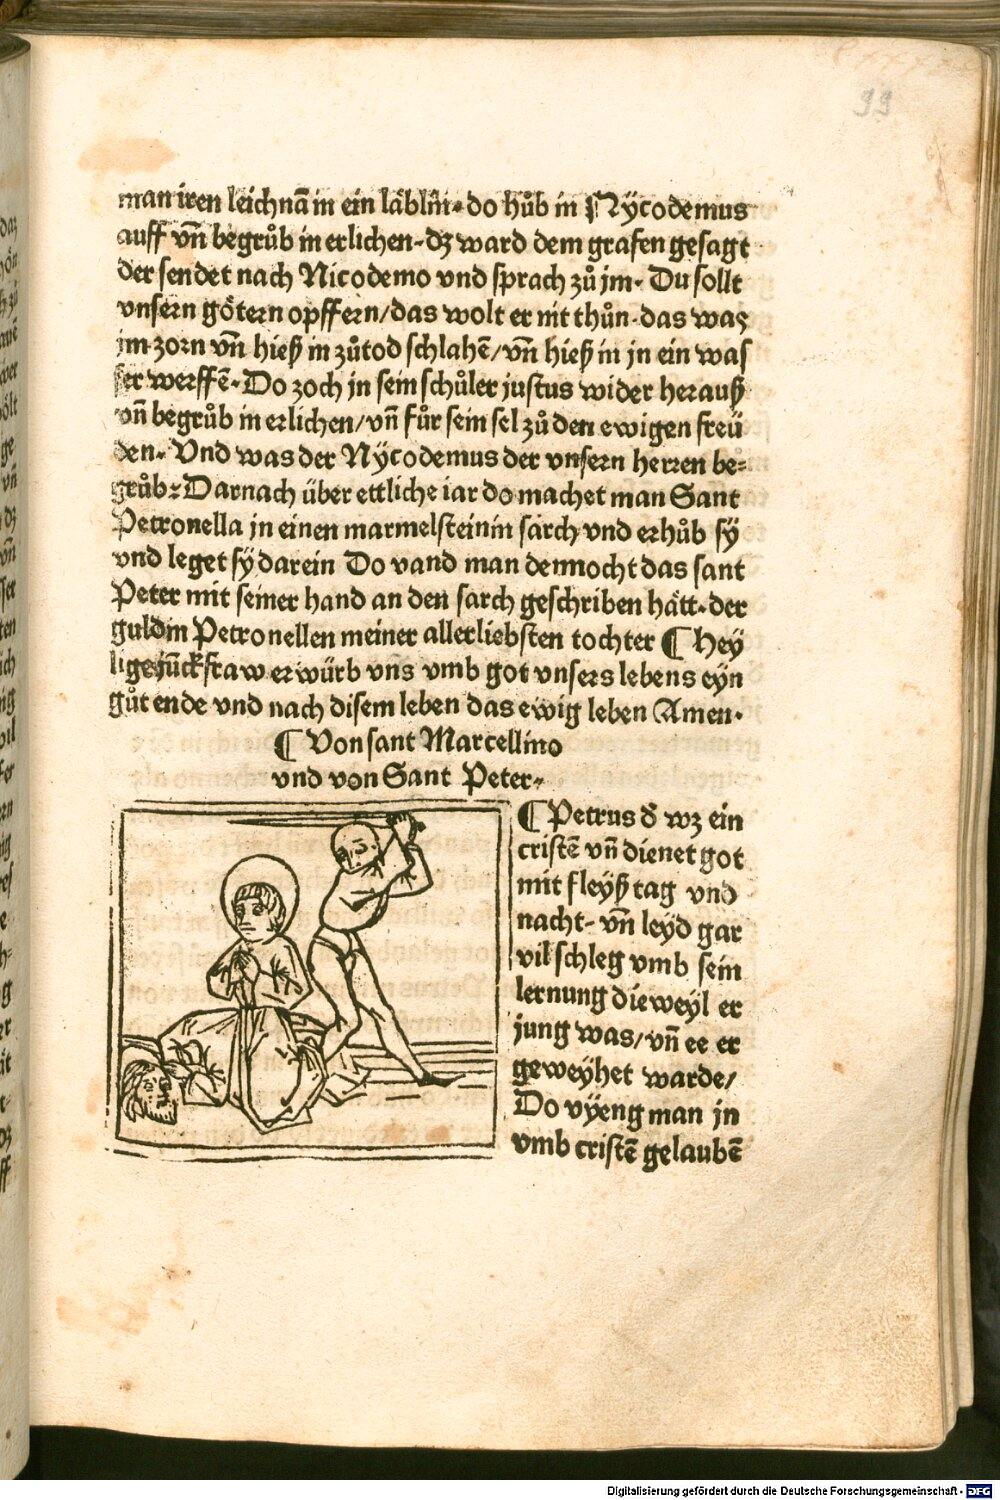 99
man iren leichnā in ein läblin̄. do hůb in Nÿcodemus
auff vn̄ begrůb in erlichen. dz ward dem grafen gesagt
der sendet nach Nicodemo vnd sprach zů jm. Du sollt
vnsern götern opffern/das wolt er nit thůn. das was
jm zorn vn̄ hieß in zůtod schlahē/vn̄ hieß in jn ein was
ser werffē. Do zoch jn sein schůler justus wider herauß
vn̄ begrůb in erlichen/vn̄ fůr sein sel zů den ewigen freü
den. Vnd was der Nÿcodemus der vnsern herren be⸗
grůb. Darnach über ettliche iar do machet man Sant
Petronella jn einen marmelsteinin sarch vnd erhůb sÿ
vnd leget sÿ darein Do vand man dennocht das sant
Peter mit seiner hand an den sarch geschriben hätt. der
guldin Petronellen meiner allerliebsten tochter ¶ Hey
lige jūckfraw erwürb vns vmb got vnsers lebens eyn
gůt ende vnd nach disem leben das ewig leben Amen.
¶ Von sant Marcellino
vnd von Sant Peter.
¶ Petrus đ wz ein
cristē vn̄ dienet got
mit fleyß tag vnd
nacht. vn̄ leyd gar
vil schleg vmb sein
lernung die weyl er
jung was/vn̄ ee er
geweyhet warde/
Do vÿeng man jn
vmb cristē gelaubē
Digitalisierung gefördert durch die Deutsche Forschungsgemeinschaft - DFG